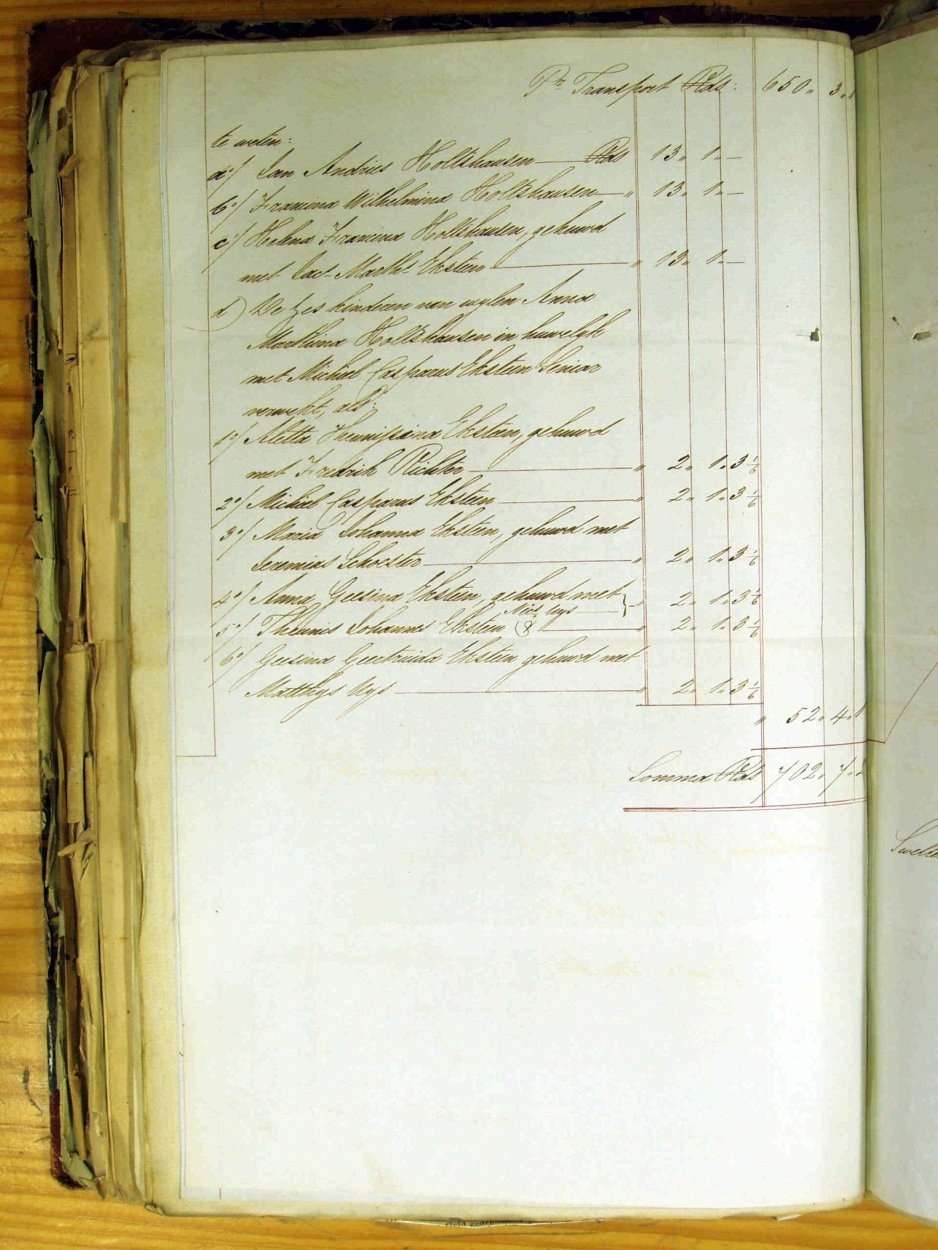 Pr Transport Rds: 650„ 3„
te weten:
a°/ Jan Andries Holtzhausen Rds 13„ 1„ —
b°/ Francina Wilhelmina Holtzhausen „ 13„ 1„ —
c°/ Helena Francina Holtzhausen, gehuwd
met Jact Marths Eksteen „ 13„ 1„ —
d) De Zes kinderen van wylen Anna
Marthina Holtzhausen in huwelyk
met Michiel Casparus Eksteen Senior
verwekt, als:
1°/ Aletta Theunissina Eksteen, gehuwd
met Fredrik Richter „ 2„ 1„ 3 1/6
2°/ Michiel Casparus Eksteen „ 2„ 1„ 3 1/6
3°/ Maria Johanna Eksteen, gehuwd met
Jeremias Schoester „ 2„ 1„ 3 1/6
4°/ Anna Geesina Eksteen, gehuwd met „ 2„ 1„ 3 1/6
Uys
5°/ Theunis Johannes Eksteen „ 2„ 1„ 3 1/6
6°/ Geesina Geertruida Eksteen gehuwd met
Matthys Uys „ 2„ 1„ 3 1/6
„ 52„ 4„
Somma Rds 702„ 7„